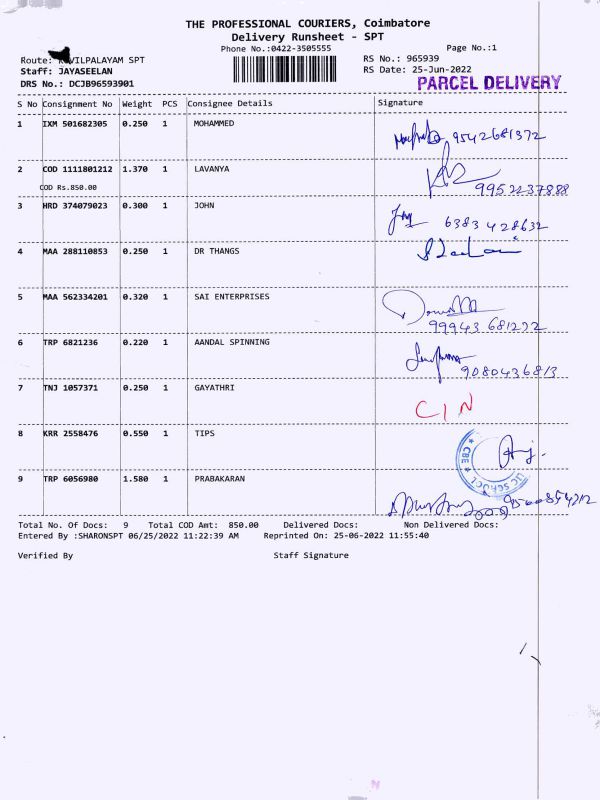 THE PROFESSIONAL COURIERS, Coimbatore
Delivery Runsheet - SPT
Phone No.:0422-3505555
Page No.:1
Route: VILPALAYAM SPT
RS No.: 965939
Staff: JAYASEELAN
RS Date: 25-Jun-2022
DRS No.: DCJB96593901
PARCEL DELIVERY
S No Consignment No Weight PCS Consignee Details Signature
1 IXM 501682305 0.250 1 MOHAMMED
9542681372
2 COD 1111801212 1.370 1 LAVANYA
COD Rs.850.00
9952237888
3 HRD 374079023 0.300 1 JOHN
6383428632
4 MAA 288110853 0.250 1 DR THANGS
5 MAA 562334201 0.320 1 SAI ENTERPRISES
99943 681272
6 TRP 6821236 0.220 1 AANDAL SPINNING
9080436813
7 TNJ 1057371 0.250 1 GAYATHRI
CIN
8 KRR 2558476 0.550 1 TIPS
★ CBE ★ SCHOOL
9 TRP 6056980 1.580 1 PRABAKARAN
Total No. Of Docs: 9 Total COD Amt: 850.00 Delivered Docs: Non Delivered Docs:
Entered By :SHARONSPT 06/25/2022 11:22:39 AM Reprinted On: 25-06-2022 11:55:40
Verified By Staff Signature